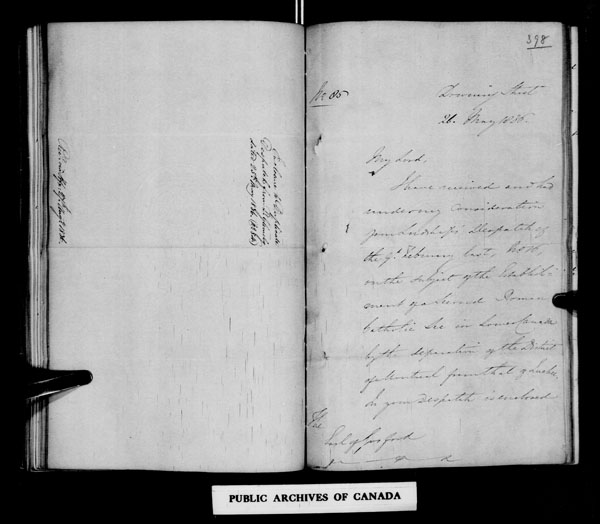 398
No 85
Downing Street
26. May 1836.
My Lord,
I have received and had
under my consideration
your Lordship's Despatch of
the 9th February last, No 18,
on the subject of the Establish-
ment of a Second Roman
Catholic See in Lower Canada
by the separation of the District
of Montreal from that of Quebec.
In your Despatch is enclosed
The
Earl of Gosford
Despatch from
dated 25th May 1836
PUBLIC ARCHIVES OF CANADA